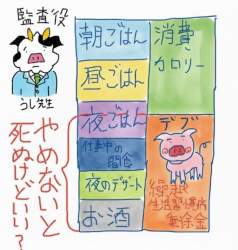 監査役
うし先生
やめないと
死ぬけどいい?
朝ごはん
昼ごはん
夜ごはん
仕事中の
間食
夜のデザート
お酒
消費
カロリー
デブ
繰越
生活習慣病
無保金